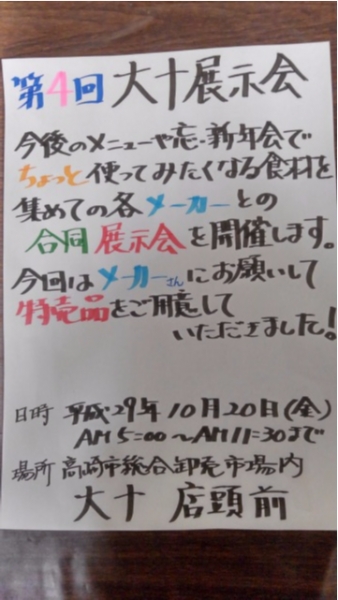 第4回 大十展示会
今後のメニューや忘・新年会で
ちょっと使ってみたくなる食材を
集めての各メーカーとの
合同展示会を開催します。
今回はメーカーさんにお願いして
特売品をご用意して
いただきました!
日時 平成29年10月20日(金)
AM5:00〜AM11:30まで
場所 高崎市総合卸売市場内
大十 店頭前